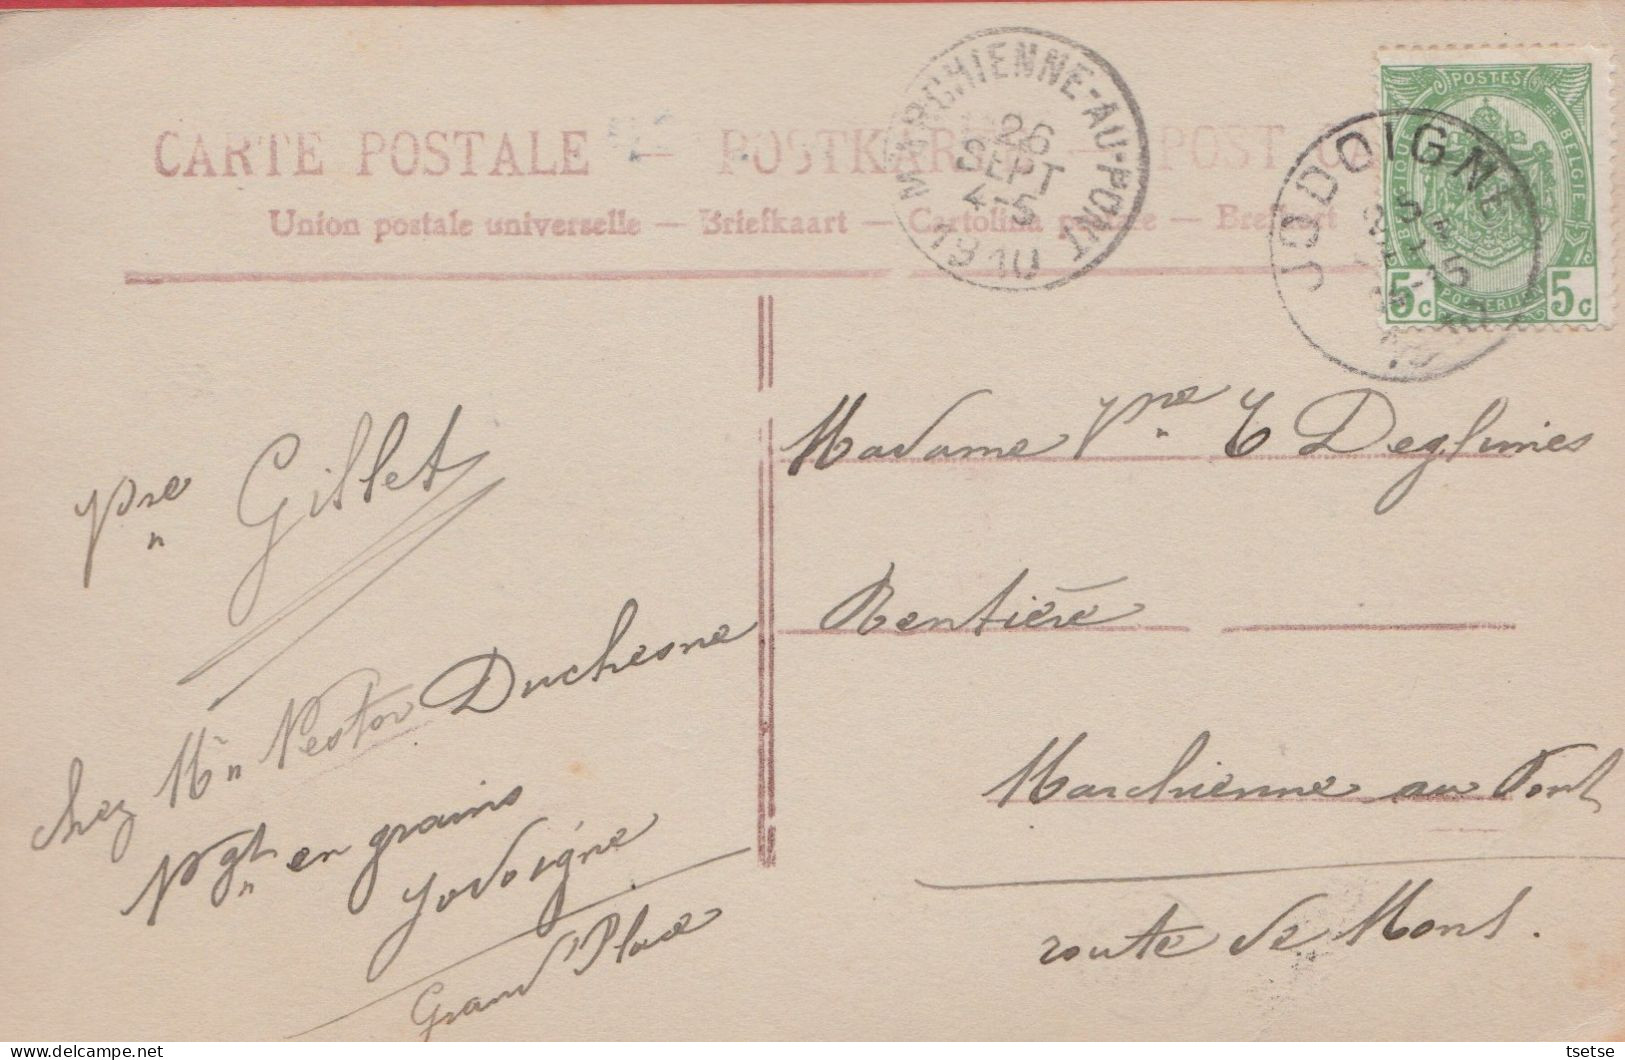 CARTE POSTALE — POSTKARTE — POST CA
Union postale universelle — Briefkaart — Cartolina postale — Brefkort
MARCHIENNE-AU-PONT
26
SEPT
4-15
1910
JODOIGNE
POSTES
BELGIQUE
DE BELGIE
POSTERIJEN
5c 5c
Vve Gillet
chez Mr Nestor Duchesne
Ngt en grains
Jodoigne
Grand'Place
Madame Vve E Deglimes
Rentière
Marchienne au Pont
route de Mons.
tsetse